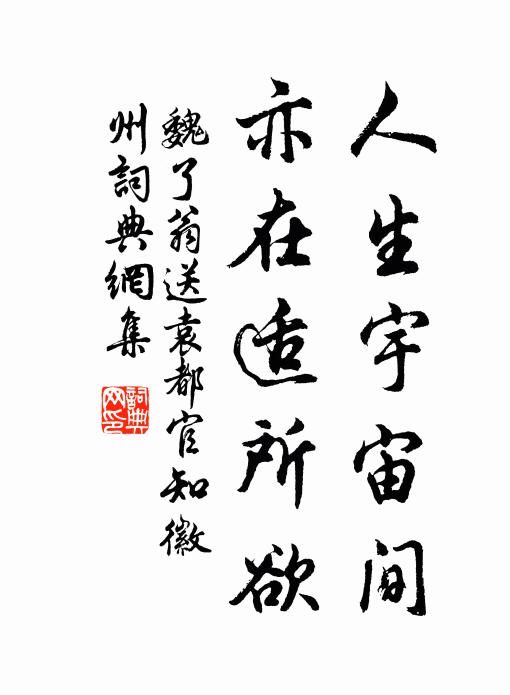 人生宇宙间
亦在适所欲
魏了翁送袁都官知徽
州詞典網集
詞典
网印